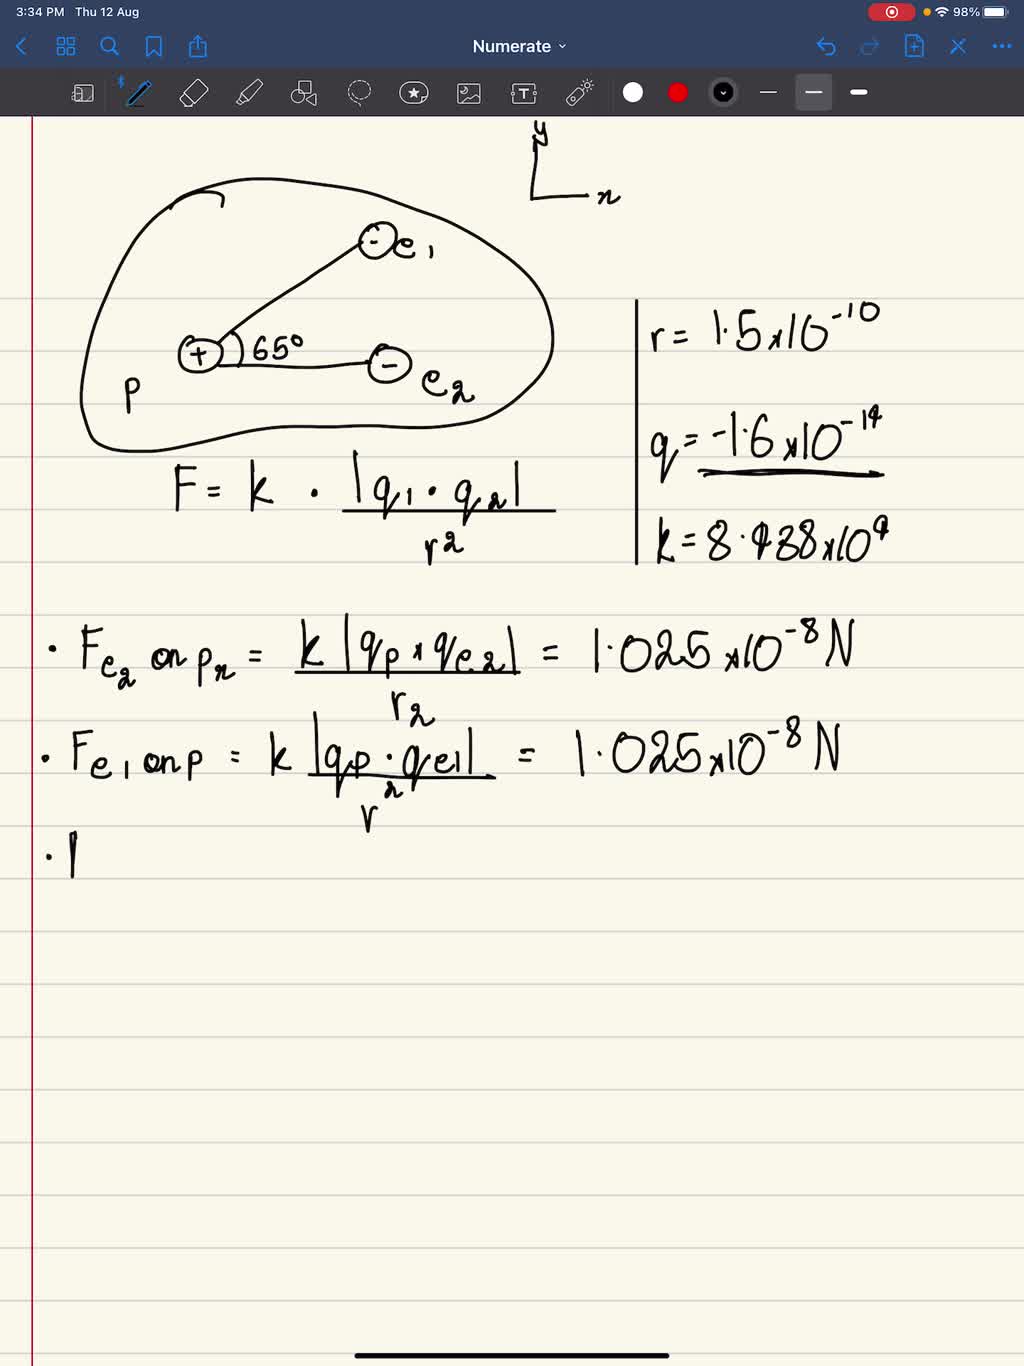 3:34 PM Thu 12 Aug 98%
Numerate
T
y
x
e1
+ 65°
p e2
r = 1.5x10^-10
q = -1.6x10^-19
k = 8.988x10^9
F = k · |q1 · q2| / r^2
· Fe2 on px = k |qp x qe2| / r2 = 1.025x10^-8 N
· Fe1 on p = k |qp · qe1| / r^2 = 1.025x10^-8 N